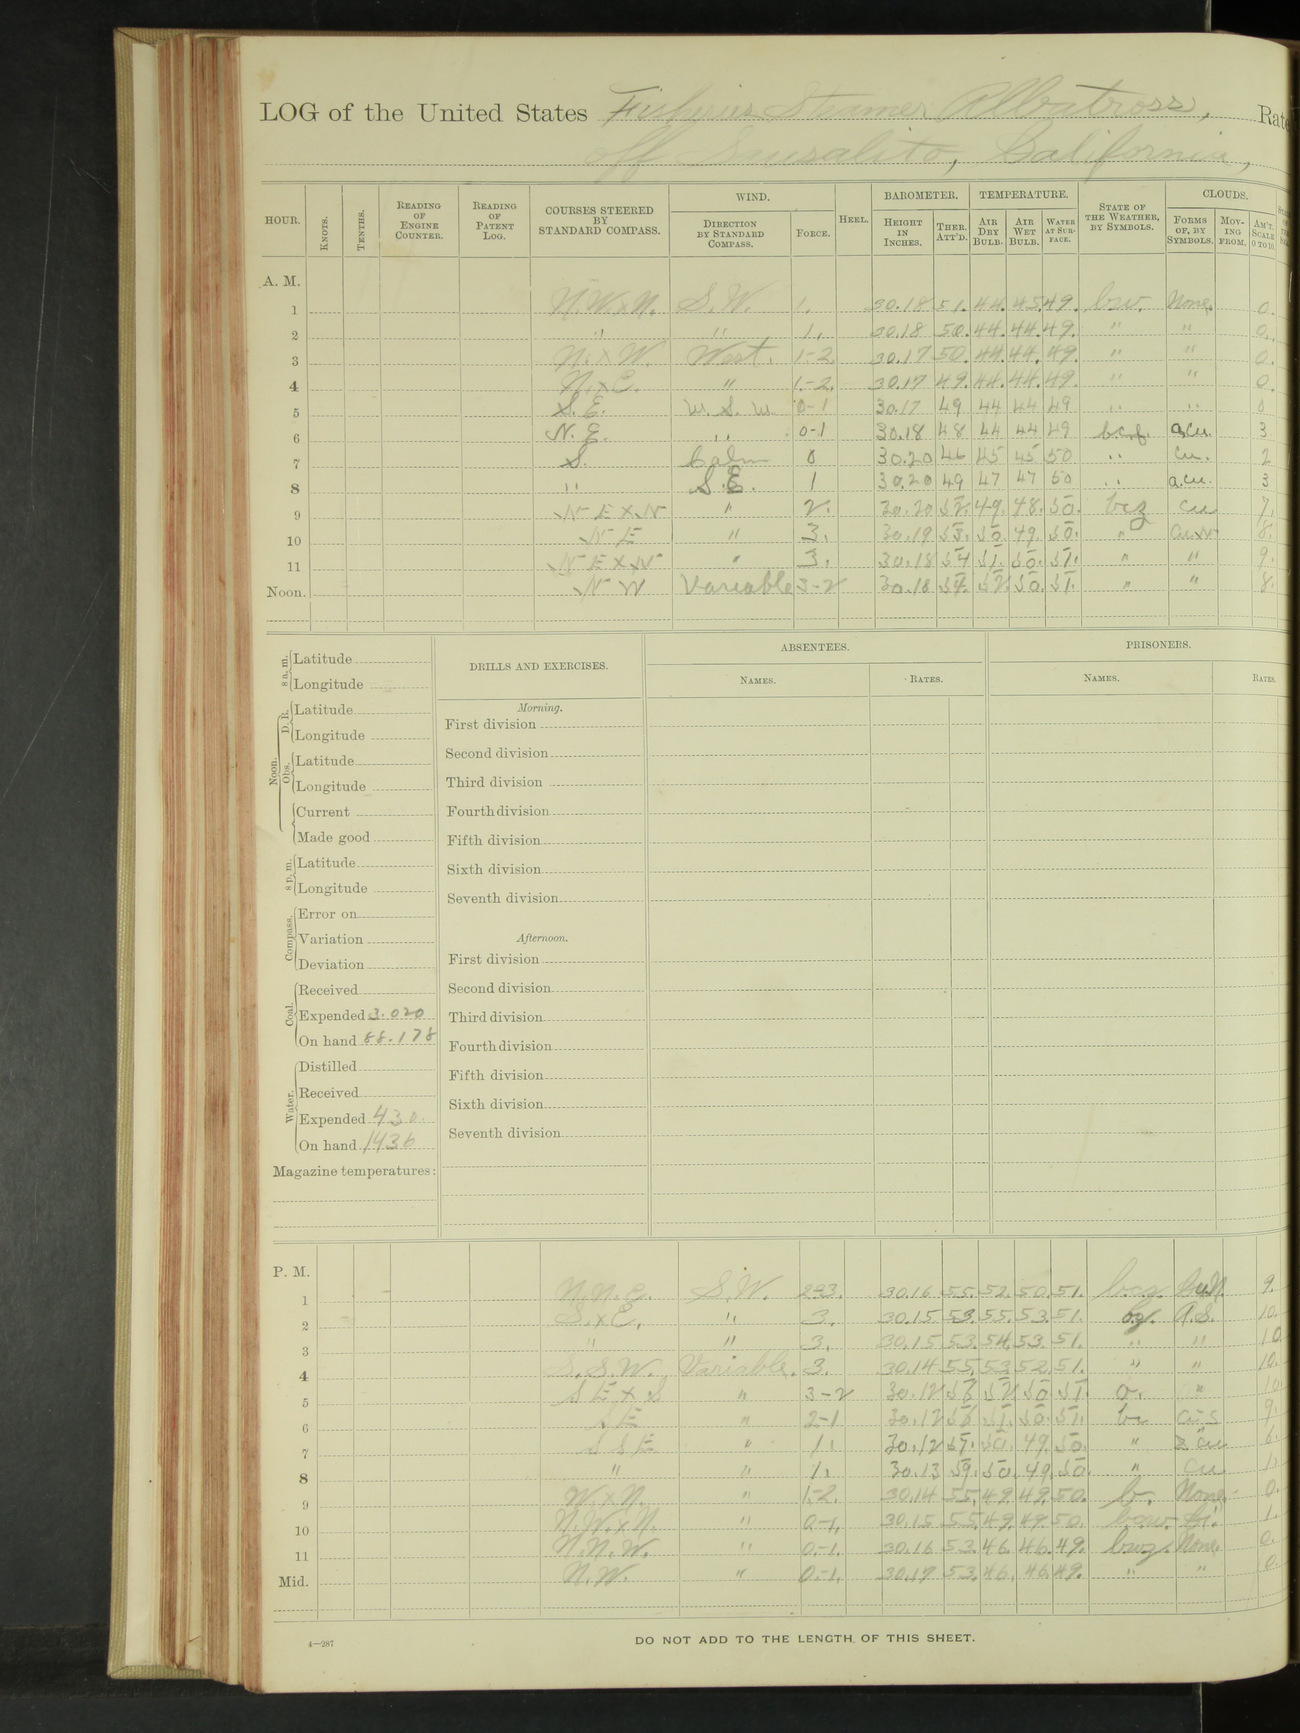 LOG of the United States Fisheries Steamer Albatross, Rate
off Sausalito, California,
HOUR. KNOTS. TENTHS. READING OF ENGINE COUNTER. READING OF PATENT LOG. COURSES STEERED BY STANDARD COMPASS. WIND. DIRECTION BY STANDARD COMPASS. FORCE. HEEL. BAROMETER. HEIGHT IN INCHES. THER. ATT'D. TEMPERATURE. AIR DRY BULB. AIR WET BULB. WATER AT SURFACE. STATE OF THE WEATHER, BY SYMBOLS. CLOUDS. FORMS OF, BY SYMBOLS. MOVING FROM. AM'T. SCALE 0 TO 10.
A. M.
1 N.W.xN. S.W. 1. 30.18 51. 44. 45. 49. bw. None. 0.
2 " " 1. 30.18 50. 44. 44. 49. " " 0.
3 N.xW. West. 1-2. 30.17 50. 44. 44. 49. " " 0.
4 N.xE. " 1-2. 30.17 49. 44. 44. 49. " " 0.
5 S.E. W.S.W. 0-1 30.17 49 44 44 49 " " 0
6 N.E. " 0-1 30.18 48 44 44 49 b.c.f. a.cu. 3
7 S. Calm 0 30.20 46 45 45 50 " cu. 2
8 " S.E. 1 30.20 49 47 47 50 " a.cu. 3
9 N E x N " 2. 30.20 52. 49. 48. 50. bcz cu 7.
10 N E " 3. 30.19 53. 50. 49. 50. " Cu.N 8.
11 N E x N " 3. 30.18 54 51. 50. 51. " " 9.
Noon. N W Variable 3-2 30.18 54. 52. 50. 51. " " 8.
8 a. m. Latitude
Longitude
Noon. D. R. Latitude
Longitude
Obs. Latitude
Longitude
Current
Made good
8 p. m. Latitude
Longitude
Compass. Error on
Variation
Deviation
Coal. Received
Expended 3.020
On hand 88.178
Water. Distilled
Received
Expended 430.
On hand 1436
Magazine temperatures:
DRILLS AND EXERCISES.
Morning.
First division
Second division
Third division
Fourth division
Fifth division
Sixth division
Seventh division
Afternoon.
First division
Second division
Third division
Fourth division
Fifth division
Sixth division
Seventh division
ABSENTEES.
NAMES. RATES.
PRISONERS.
NAMES. RATES.
P. M.
1 N.N.E. S.W. 2-3. 30.16 55. 52. 50. 51. bcz. CuN. 9.
2 S.xE. " 3. 30.15 53. 55. 53. 51. oz. A.S. 10.
3 " " 3. 30.15 53. 54. 53. 51. " " 10.
4 S.S.W. Variable. 3. 30.14 55. 53. 52. 51. " " 10.
5 S E x S " 3-2 30.12 56 52 50 51 o. " 10
6 S E " 2-1 30.12 56 51. 50. 51. bc cu-s 9.
7 S S E " 1. 30.12 57. 50. 49. 50. " cu 6.
8 " " 1. 30.13 59. 50. 49. 50. " cu 1.
9 W.xN. " 1-2. 30.14 55. 49. 49. 50. b. None. 0.
10 N.W.xN. " 0-1. 30.15 55. 49. 49. 50. bcw. Ci. 1.
11 N.N.W. " 0-1. 30.16 53. 46. 46. 49. bwz. None. 0.
Mid. N.W. " 0-1. 30.17 53. 46. 46. 49. " " 0.
4—287
DO NOT ADD TO THE LENGTH OF THIS SHEET.